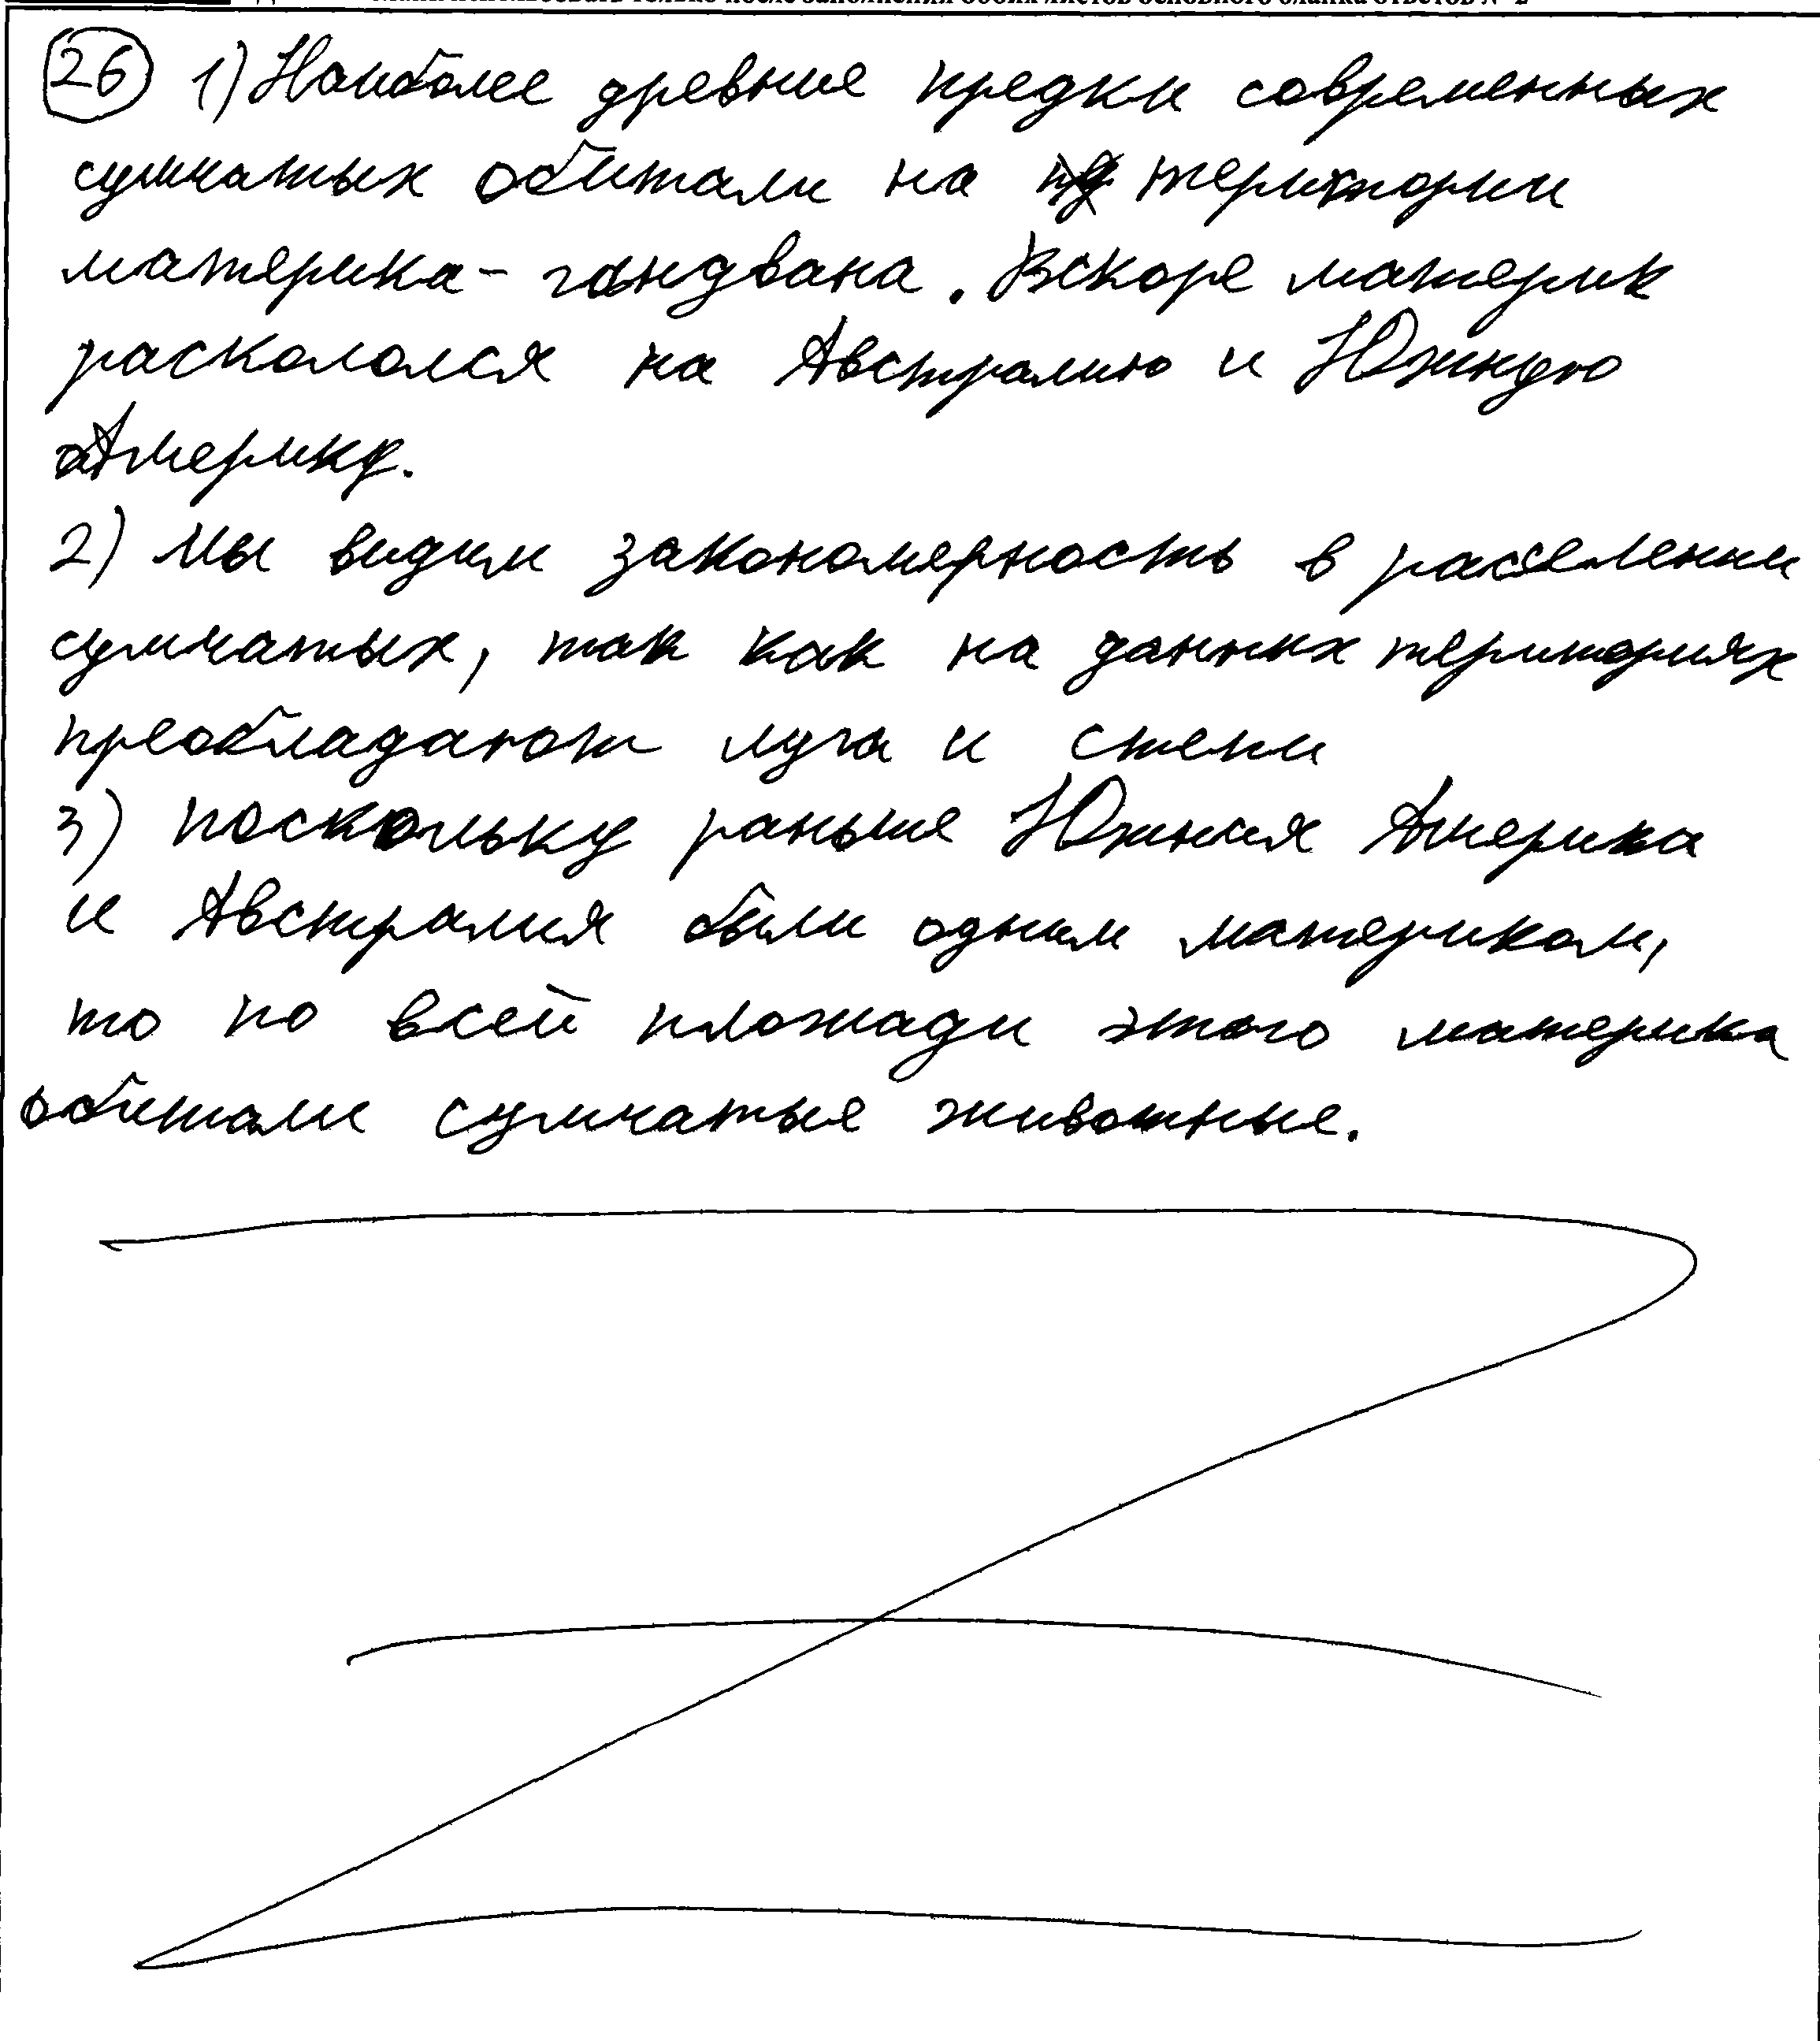 26 1) Наиболее древние предки современных
сумчатых обитали на територии
материка - гондвана. Вскоре материк
раскололся на Австралию и Южную
Америку.
2) Мы видим закономерность в раселении
сумчатых, так как на данных територия­х
преобладают луга и степи
3) поскольку раньше Южная Америка
и Австралия были одним материком,
то по всей площади этого материка
обитали сумчатые животные.